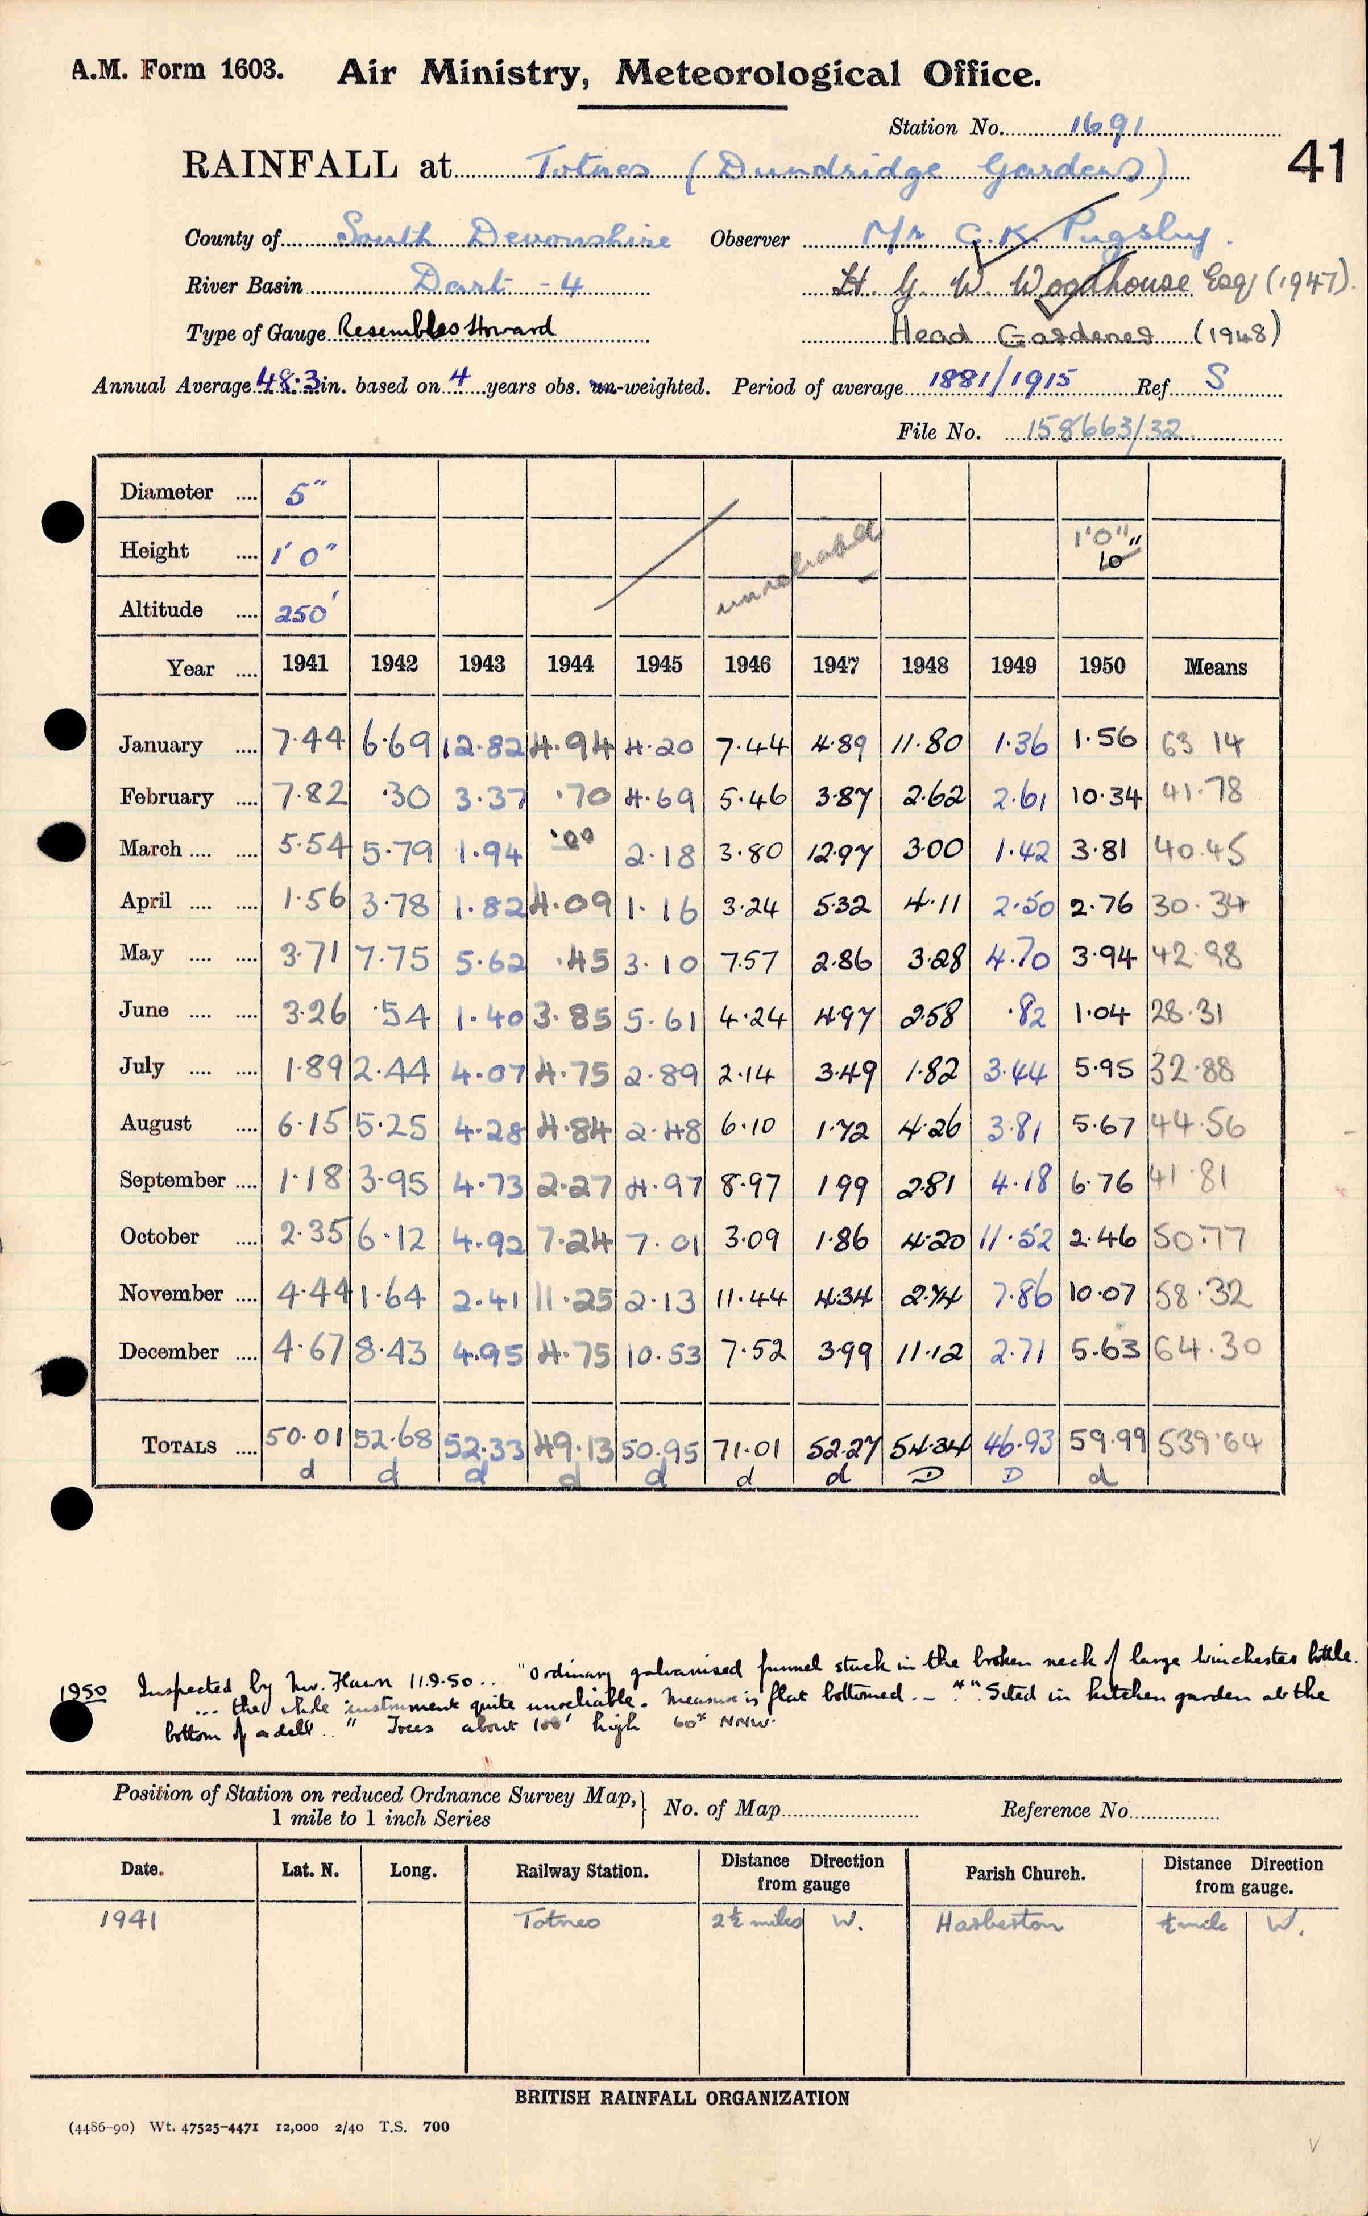 A.M. Form 1603. Air Ministry, Meteorological Office.
Station No. 1691
41
RAINFALL at Totnes (Dundridge Gardens)
County of South Devonshire Observer Mr G.K. Pugsley.
River Basin Dart - 4 H. G. W. Woodhouse Esq (1947).
Type of Gauge Resembles Howard Head Gardener (1948)
Annual Average 48.3 in. based on 4 years obs. un-weighted. Period of average 1881/1915 Ref. S
File No. 158663/32
Diameter .... 5"
Height .... 1' 0" unreliable 1'0" 10"
Altitude .... 250'
Year .... 1941 1942 1943 1944 1945 1946 1947 1948 1949 1950 Means
January .... 7.44 6.69 12.82 4.94 4.20 7.44 4.89 11.80 1.36 1.56 63 14
February .... 7.82 .30 3.37 .70 4.69 5.46 3.87 2.62 2.61 10.34 41.78
March .... .... 5.54 5.79 1.94 .00 2.18 3.80 12.97 3.00 1.42 3.81 40.45
April .... .... 1.56 3.78 1.82 4.09 1.16 3.24 5.32 4.11 2.50 2.76 30.34
May .... .... 3.71 7.75 5.62 .45 3.10 7.57 2.86 3.28 4.70 3.94 42.98
June .... .... 3.26 .54 1.40 3.85 5.61 4.24 4.97 2.58 .82 1.04 28.31
July .... .... 1.89 2.44 4.07 4.75 2.89 2.14 3.49 1.82 3.44 5.95 32.88
August .... 6.15 5.25 4.28 4.84 2.48 6.10 1.72 4.26 3.81 5.67 44.56
September .... 1.18 3.95 4.73 2.27 4.97 8.97 1 99 2.81 4.18 6.76 41 81
October .... 2.35 6.12 4.92 7.24 7.01 3.09 1.86 4.20 11.52 2.46 50.77
November .... 4.44 1.64 2.41 11.25 2.13 11.44 4.34 2.74 7.86 10.07 58.32
December .... 4.67 8.43 4.95 4.75 10.53 7.52 3.99 11.12 2.71 5.63 64.30
TOTALS .... 50.01 52.68 52.33 49.13 50.95 71.01 52.27 54.34 46.93 59.99 539.64
d d d d d d d D D d
1950 Inspected by Mr. Hawn 11.9.50.. "Ordinary galvanised funnel stuck in the broken neck of large Winchester bottle.
... the whole instrument quite unreliable. Measure is flat bottomed. — " "Sited in kitchen garden at the
bottom of a dell.. " Trees about 100' high 60x NNW.
Position of Station on reduced Ordnance Survey Map, } No. of Map Reference No.
1 mile to 1 inch Series
Date. Lat. N. Long. Railway Station. Distance Direction from gauge Parish Church. Distance Direction from gauge.
1941 Totnes 2½ miles W. Harberton mile W.
BRITISH RAINFALL ORGANIZATION
(4486-90) Wt. 47525-4471 12,000 2/40 T.S. 700